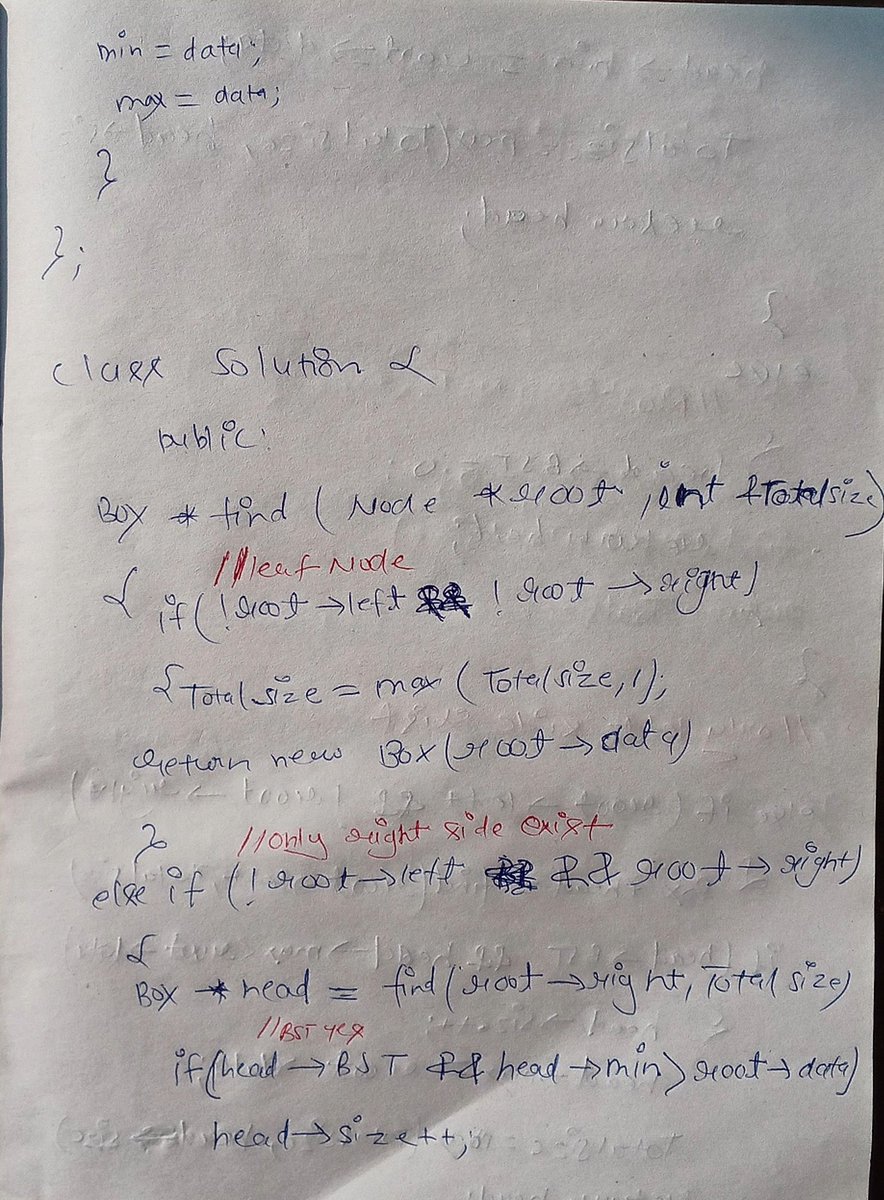 min = data;
max = data;
}
};
class Solution {
public:
Box * find ( Node * root , int &Totalsize)
//leaf Node
{ if( ! root →left && ! root →right)
{ Totalsize = max ( Totalsize, 1);
return new Box (root → data)
}
//only right side exist
else if ( ! root →left && root → right)
{
Box * head = find(root →right, Totalsize)
//BST yes
if(head → BST && head →min > root → data)
head → size++;